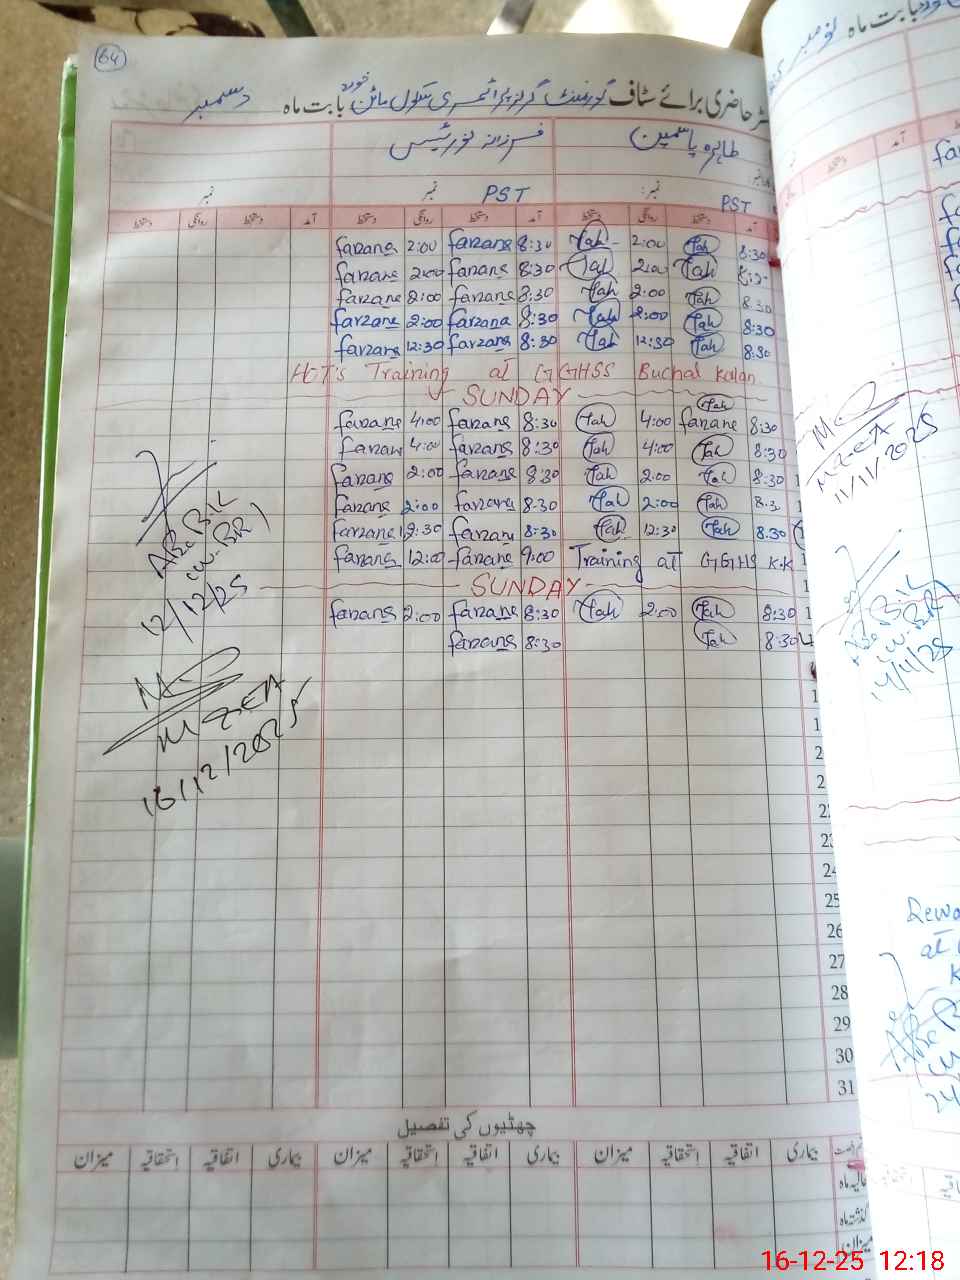 64
رجسٹر حاضری برائے سٹاف گورنمنٹ گرلز پرائمری سکول بابت ماہ دسمبر
طاہرہ یاسمین فرزانہ نورئیس
نمبر: PST نمبر PST نمبر
آمد دستخط روانگی دستخط آمد دستخط روانگی دستخط آمد دستخط روانگی دستخط
farzana 2:00 farzana 8:30 Tah 2:00 Tah 8:30
farzana 2:00 farzana 8:30 Tah 2:00 Tah 8:30
farzana 2:00 farzana 8:30 Tah 2:00 Tah 8:30
farzana 2:00 farzana 8:30 Tah 2:00 Tah 8:30
farzana 12:30 farzana 8:30 Tah 12:30 Tah 8:30
HOT's Training at GGHSS Buchal Kalan
SUNDAY
farzana 4:00 farzana 8:30 Tah 4:00 Tah farzana 8:30
farzana 4:00 farzana 8:30 Tah 4:00 Tah 8:30
farzana 2:00 farzana 8:30 Tah 2:00 Tah 8:30
farzana 2:00 farzana 8:30 Tah 2:00 Tah 8:30
farzana 12:30 farzana 8:30 Tah 12:30 Tah 8:30
farzana 12:00 farzana 9:00 Training at GGHS K.K
SUNDAY
farzana 2:00 farzana 8:30 Tah 2:00 Tah 8:30
farzana 8:30 Tah 8:30
12/12/25
16/12/2025
22
23
24
25
26
27
28
29
30
31
چھٹیوں کی تفصیل
بیماری اتفاقیہ استحقاقیہ میزان بیماری اتفاقیہ استحقاقیہ میزان بیماری اتفاقیہ استحقاقیہ میزان
حالیہ ماہ
گذشتہ ماہ
میزان
بابت ماہ نومبر
11/11/2025
14/11/25
at
24
16-12-25 12:18